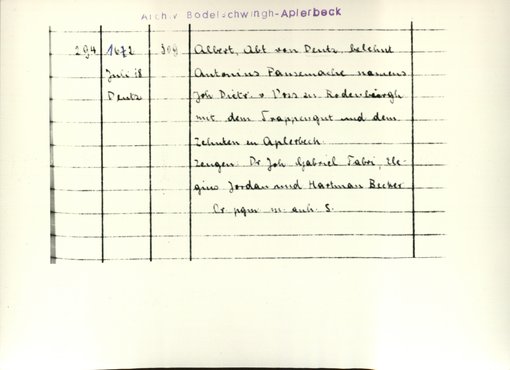 Archiv Bodelschwingh-Aplerbeck
294 1672 309 Albert, Abt von Deutz, belehnt
Juli 18 Antonius Pansemache namens
Deutz Joh. Dietr. v. Voss zu Rodenbergh
mit dem Trappengut und dem
Zehnten zu Aplerbeck.
Zeugen: Dr Joh. Gabriel Fabri, Ele-
gius Jordan und Hartman Becker
Or. pgm. m. anh. S.